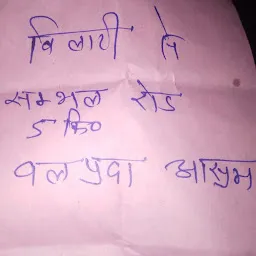 बिलारी से
सम्भल रोड
5 कि०
वलप्रवा आस्रम